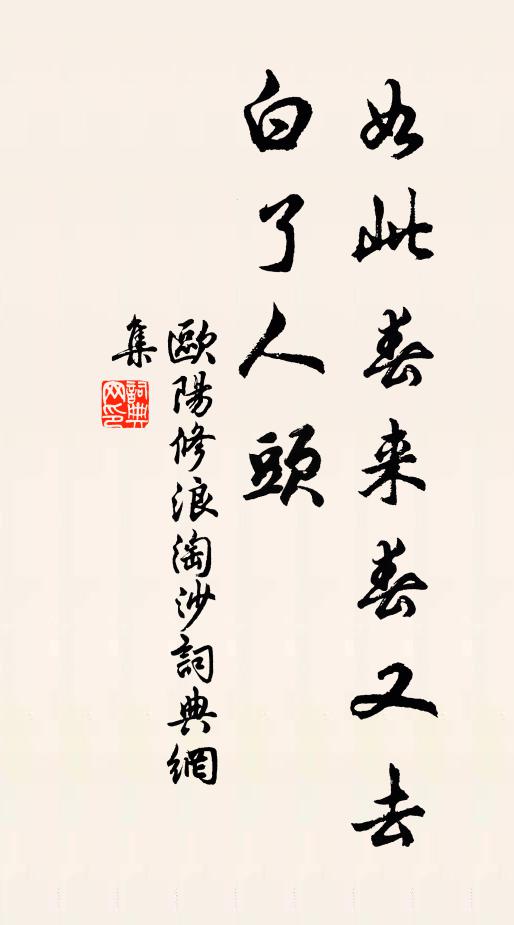 如此春来春又去
白了人頭
歐陽修浪淘沙詞典網
集
詞典
网印